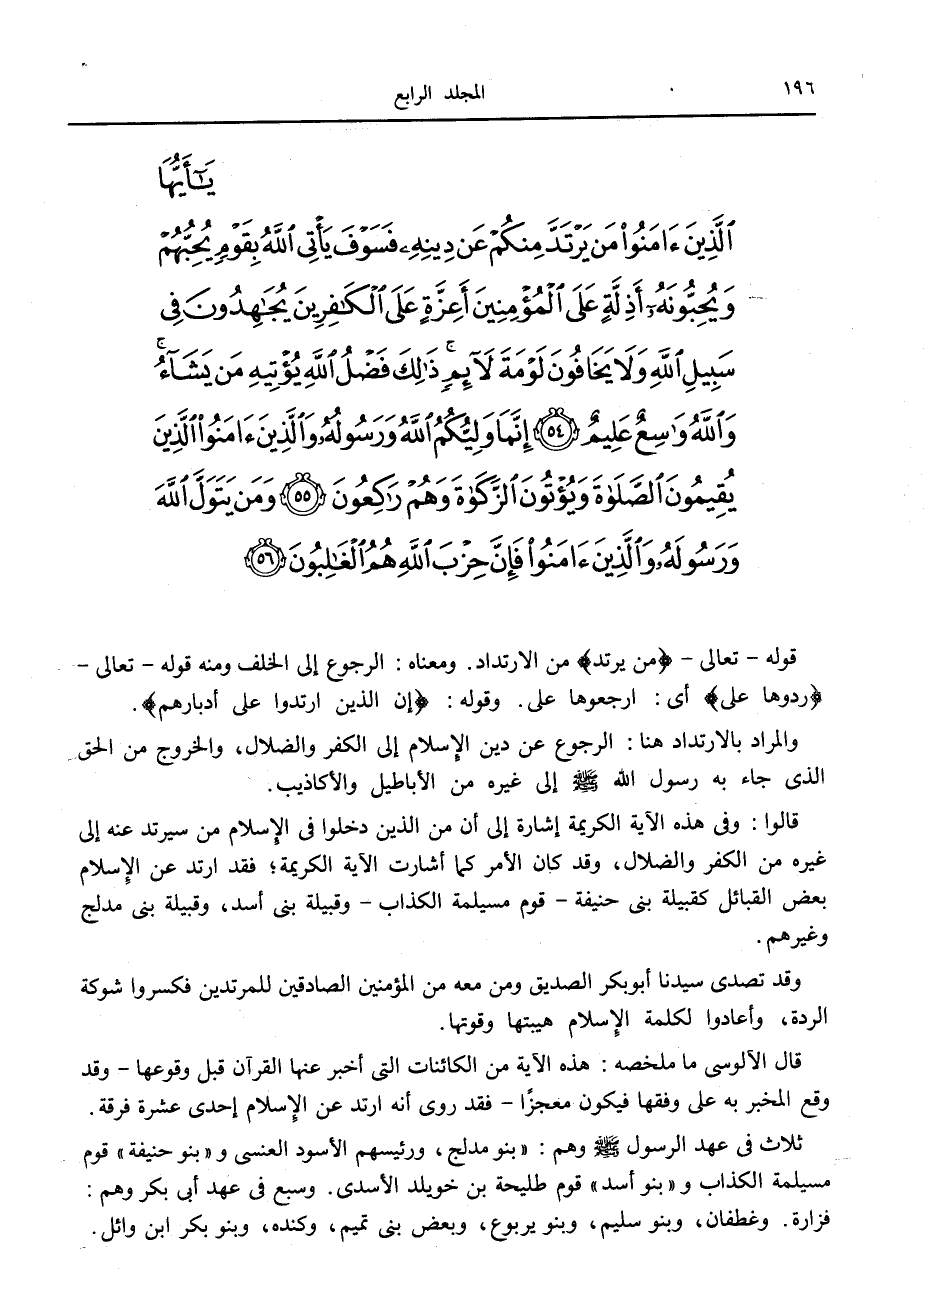 ١٩٦
المجلد الرابع
يَـٰٓأَيُّهَا
ٱلَّذِينَ ءَامَنُوا۟ مَن يَرْتَدَّ مِنكُمْ عَن دِينِهِۦ فَسَوْفَ يَأْتِى ٱللَّهُ بِقَوْمٍ يُحِبُّهُمْ
وَيُحِبُّونَهُۥٓ أَذِلَّةٍ عَلَى ٱلْمُؤْمِنِينَ أَعِزَّةٍ عَلَى ٱلْكَـٰفِرِينَ يُجَـٰهِدُونَ فِى
سَبِيلِ ٱللَّهِ وَلَا يَخَافُونَ لَوْمَةَ لَآئِمٍ ۚ ذَٰلِكَ فَضْلُ ٱللَّهِ يُؤْتِيهِ مَن يَشَآءُ ۚ
وَٱللَّهُ وَٰسِعٌ عَلِيمٌ ﴿٥٤﴾ إِنَّمَا وَلِيُّكُمُ ٱللَّهُ وَرَسُولُهُۥ وَٱلَّذِينَ ءَامَنُوا۟ ٱلَّذِينَ
يُقِيمُونَ ٱلصَّلَوٰةَ وَيُؤْتُونَ ٱلزَّكَوٰةَ وَهُمْ رَٰكِعُونَ ﴿٥٥﴾ وَمَن يَتَوَلَّ ٱللَّهَ
وَرَسُولَهُۥ وَٱلَّذِينَ ءَامَنُوا۟ فَإِنَّ حِزْبَ ٱللَّهِ هُمُ ٱلْغَـٰلِبُونَ ﴿٥٦﴾
قوله - تعالى - ﴿من يرتد﴾ من الارتداد. ومعناه : الرجوع إلى الخلف ومنه قوله - تعالى -
﴿ردوها على﴾ أى : ارجعوها على. وقوله : ﴿إن الذين ارتدوا على أدبارهم﴾.
والمراد بالارتداد هنا : الرجوع عن دين الإسلام إلى الكفر والضلال، والخروج من الحق
الذى جاء به رسول الله ﷺ إلى غيره من الأباطيل والأكاذيب.
قالوا : وفى هذه الآية الكريمة إشارة إلى أن من الذين دخلوا فى الإسلام من سيرتد عنه إلى
غيره من الكفر والضلال، وقد كان الأمر كما أشارت الآية الكريمة؛ فقد ارتد عن الإسلام
بعض القبائل كقبيلة بنى حنيفة - قوم مسيلمة الكذاب - وقبيلة بنى أسد، وقبيلة بنى مدلج
وغيرهم.
وقد تصدى سيدنا أبوبكر الصديق ومن معه من المؤمنين الصادقين للمرتدين فكسروا شوكة
الردة، وأعادوا لكلمة الإسلام هيبتها وقوتها.
قال الآلوسى ما ملخصه : هذه الآية من الكائنات التى أخبر عنها القرآن قبل وقوعها - وقد
وقع المخبر به على وفقها فيكون معجزًا - فقد روى أنه ارتد عن الإسلام إحدى عشرة فرقة.
ثلاث فى عهد الرسول ﷺ وهم : «بنو مدلج، ورئيسهم الأسود العنسى و«بنو حنيفة» قوم
مسيلمة الكذاب و«بنو أسد» قوم طليحة بن خويلد الأسدى. وسبع فى عهد أبى بكر وهم :
فزارة. وغطفان، وبنو سليم، وبنو يربوع، وبعض بنى تميم، وكنده، وبنو بكر ابن وائل.